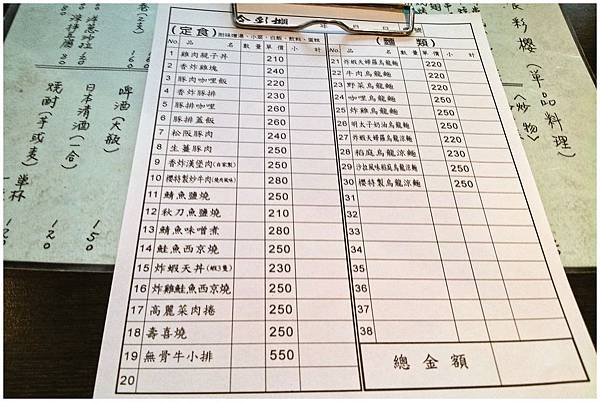 (定食) 附味噌湯、小菜、白飯、飲料、蛋糕
No. 品 名 數量 單價 小 計
1 雞肉親子丼 210
2 香炸雞塊 240
3 豚肉咖哩飯 240
4 香炸豚排
5 豚排咖哩 260
6 豚排蓋飯 260
7 松阪豚肉 240
8 生薑豚肉 250
9 香炸漢堡肉(自家製) 250
10 櫻特製炒牛肉(燒肉風味) 280
11 鯖魚鹽燒 250
12 秋刀魚鹽燒 210
13 鯖魚味噌煮 280
14 鮭魚西京燒 250
15 炸蝦天丼(蝦3隻) 230
16 炸雞鮭魚西京燒 250
17 高麗菜肉捲 250
18 壽喜燒 250
19 無骨牛小排 550
20
年 月 日
(麵 類)
No. 品 名 數量 單價 小 計
21 炸蝦天婦羅烏龍麵 220
22 牛肉烏龍麵
23 野菜烏龍麵 220
24 咖哩烏龍麵 250
25 炸雞烏龍麵 250
26 明太子奶油烏龍麵
27 炸蝦天婦羅烏龍涼麵 220
28 稻庭烏龍涼麵 250
29 沙拉風味稻庭烏龍涼麵
30 櫻特製烏龍涼麵 250
31
32
33
34
35
36
37
38
總金額
啤酒(大瓶) 150
日本清酒(一合) 120
燒酎(芋或麥) 單杯
(單品料理)
(炒物)